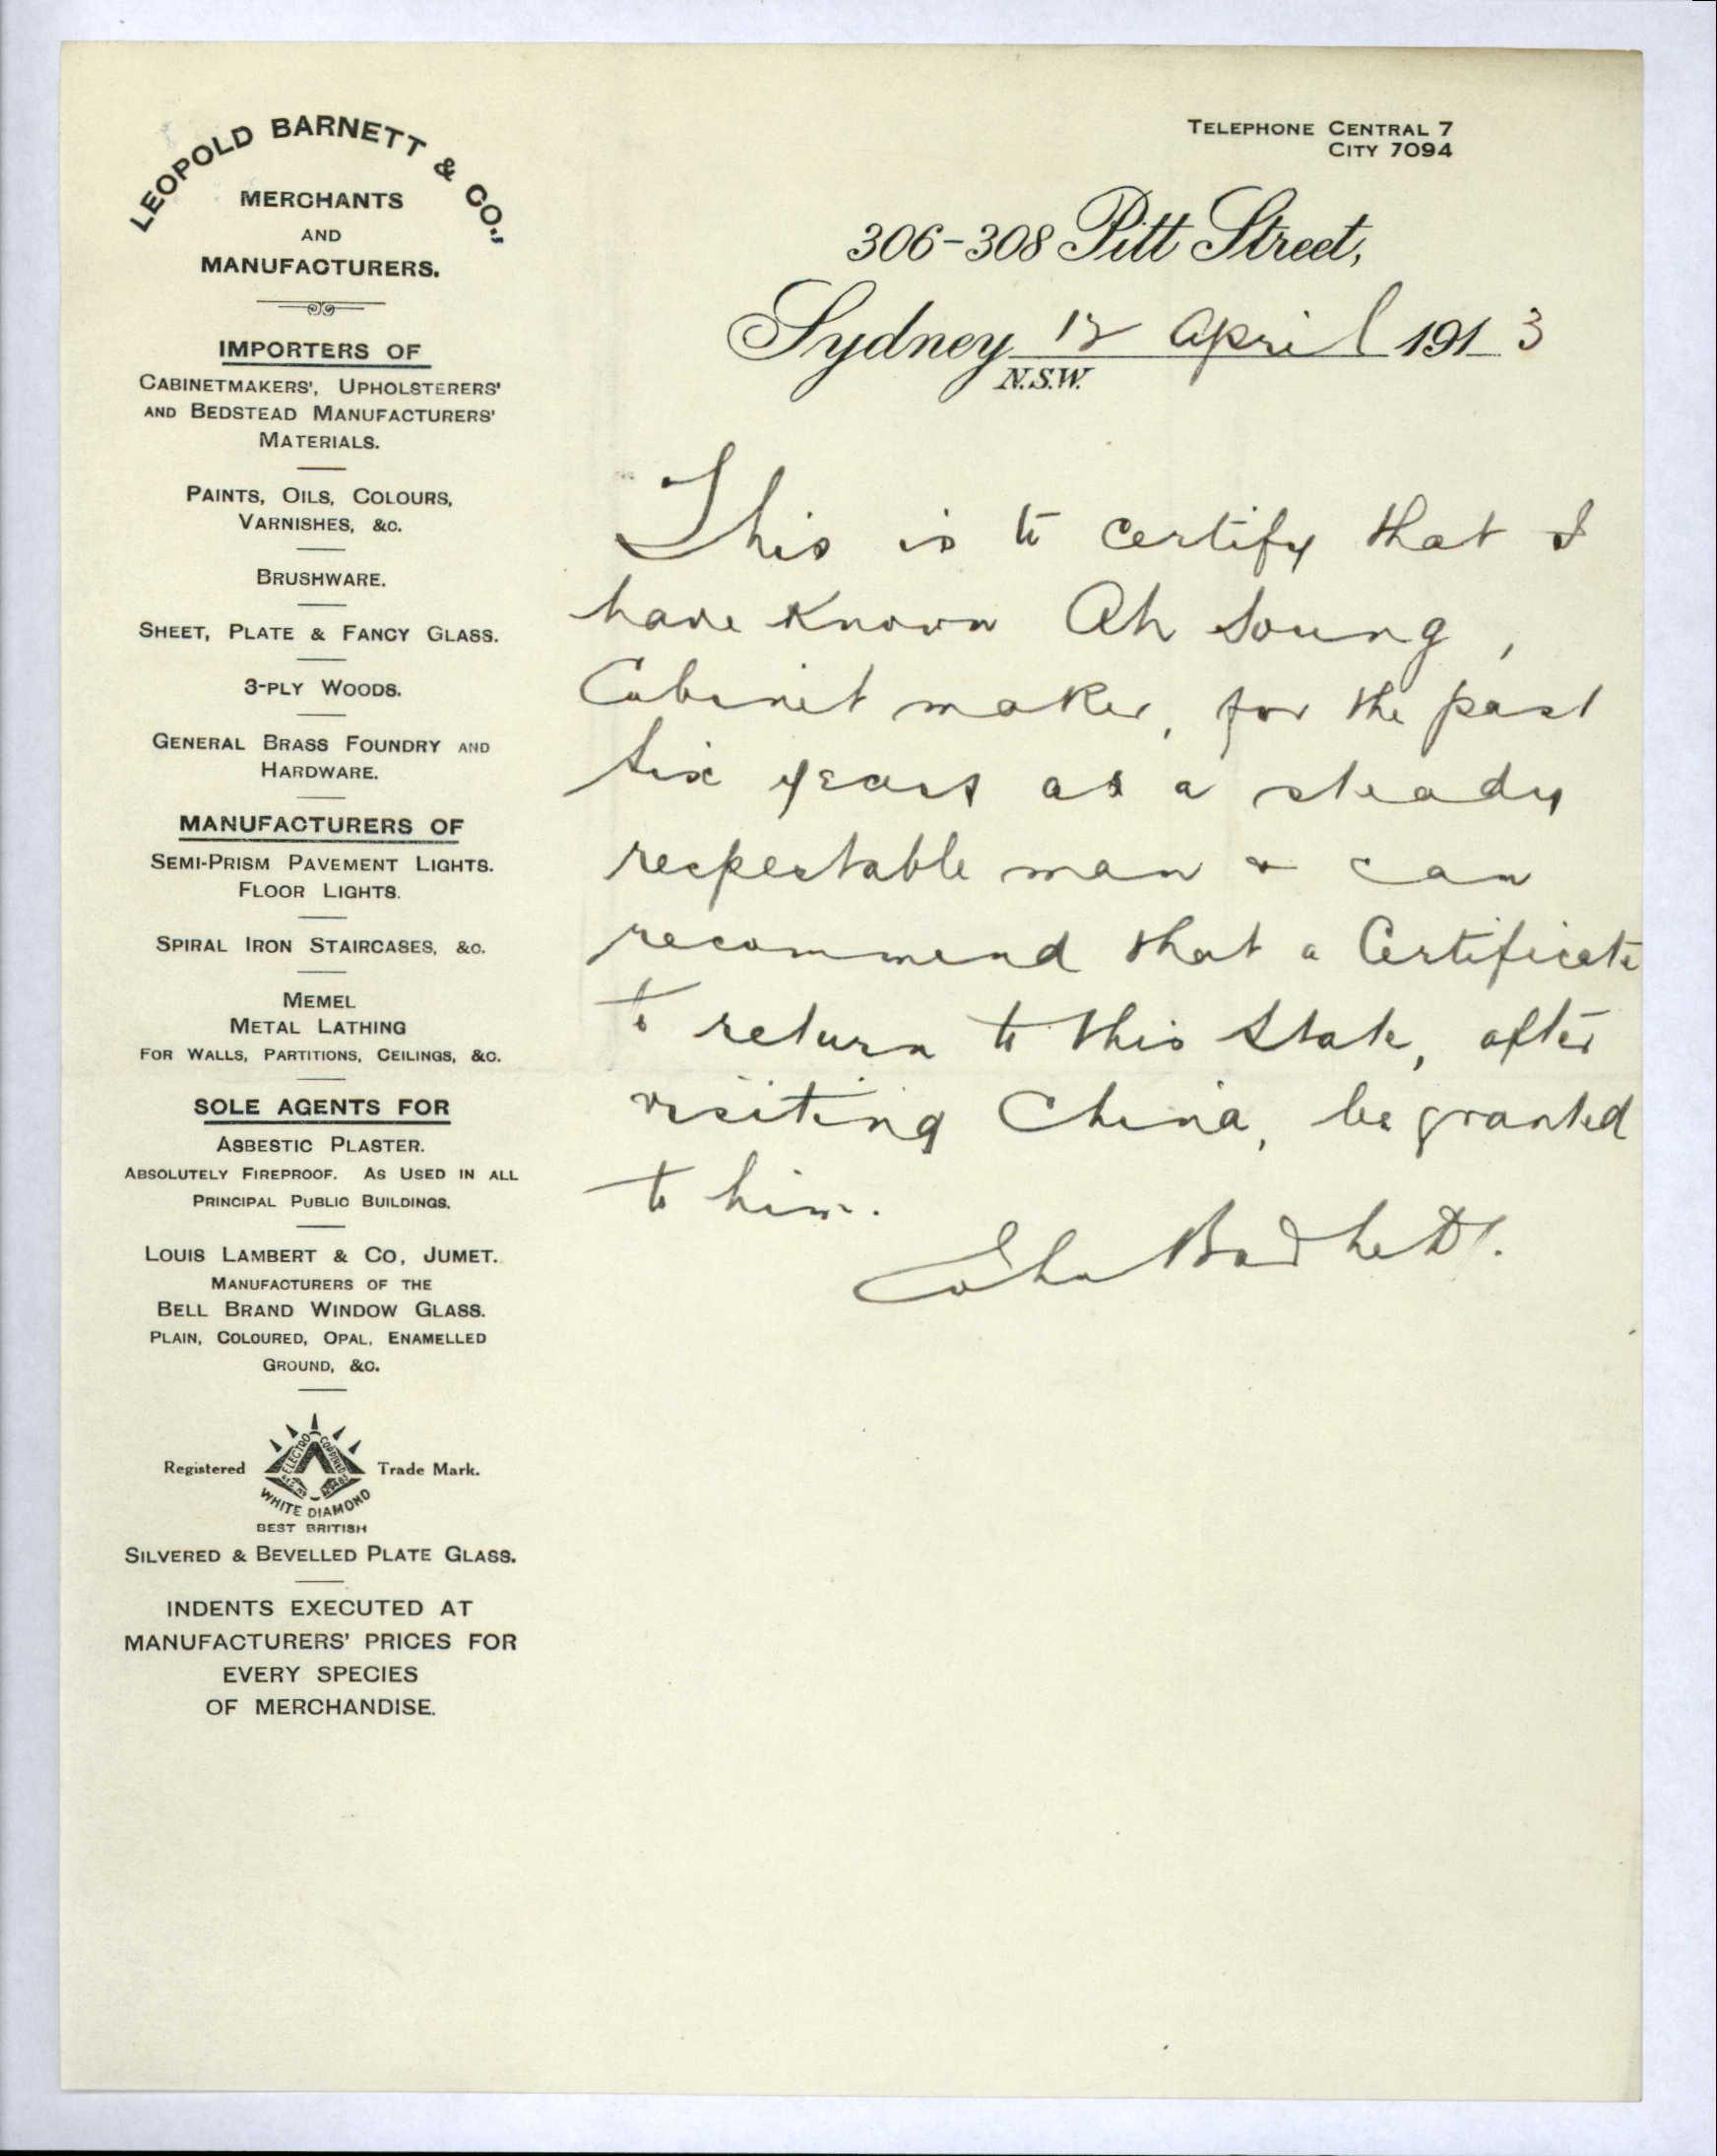 LEOPOLD BARNETT & CO.,
MERCHANTS
AND
MANUFACTURERS.
IMPORTERS OF
CABINETMAKERS', UPHOLSTERERS'
AND BEDSTEAD MANUFACTURERS'
MATERIALS.
PAINTS, OILS, COLOURS,
VARNISHES, &C.
BRUSHWARE.
SHEET, PLATE & FANCY GLASS.
3-PLY WOODS.
GENERAL BRASS FOUNDRY AND
HARDWARE.
MANUFACTURERS OF
SEMI-PRISM PAVEMENT LIGHTS.
FLOOR LIGHTS.
SPIRAL IRON STAIRCASES, &C.
MEMEL
METAL LATHING
FOR WALLS, PARTITIONS, CEILINGS, &C.
SOLE AGENTS FOR
ASBESTIC PLASTER.
ABSOLUTELY FIREPROOF. AS USED IN ALL
PRINCIPAL PUBLIC BUILDINGS.
LOUIS LAMBERT & CO, JUMET.
MANUFACTURERS OF THE
BELL BRAND WINDOW GLASS.
PLAIN, COLOURED, OPAL, ENAMELLED
GROUND, &C.
Registered Trade Mark.
ELECTRO COPPERED
WHITE DIAMOND
BEST BRITISH
SILVERED & BEVELLED PLATE GLASS.
INDENTS EXECUTED AT
MANUFACTURERS' PRICES FOR
EVERY SPECIES
OF MERCHANDISE.
TELEPHONE CENTRAL 7
CITY 7094
306-308 Pitt Street,
Sydney 12 April 1913
N.S.W.
This is to certify that I
have known Ah Soung,
Cabinet maker, for the past
six years as a steady
respectable man & can
recommend that a Certificate
to return to this State, after
visiting China, be granted
to him.